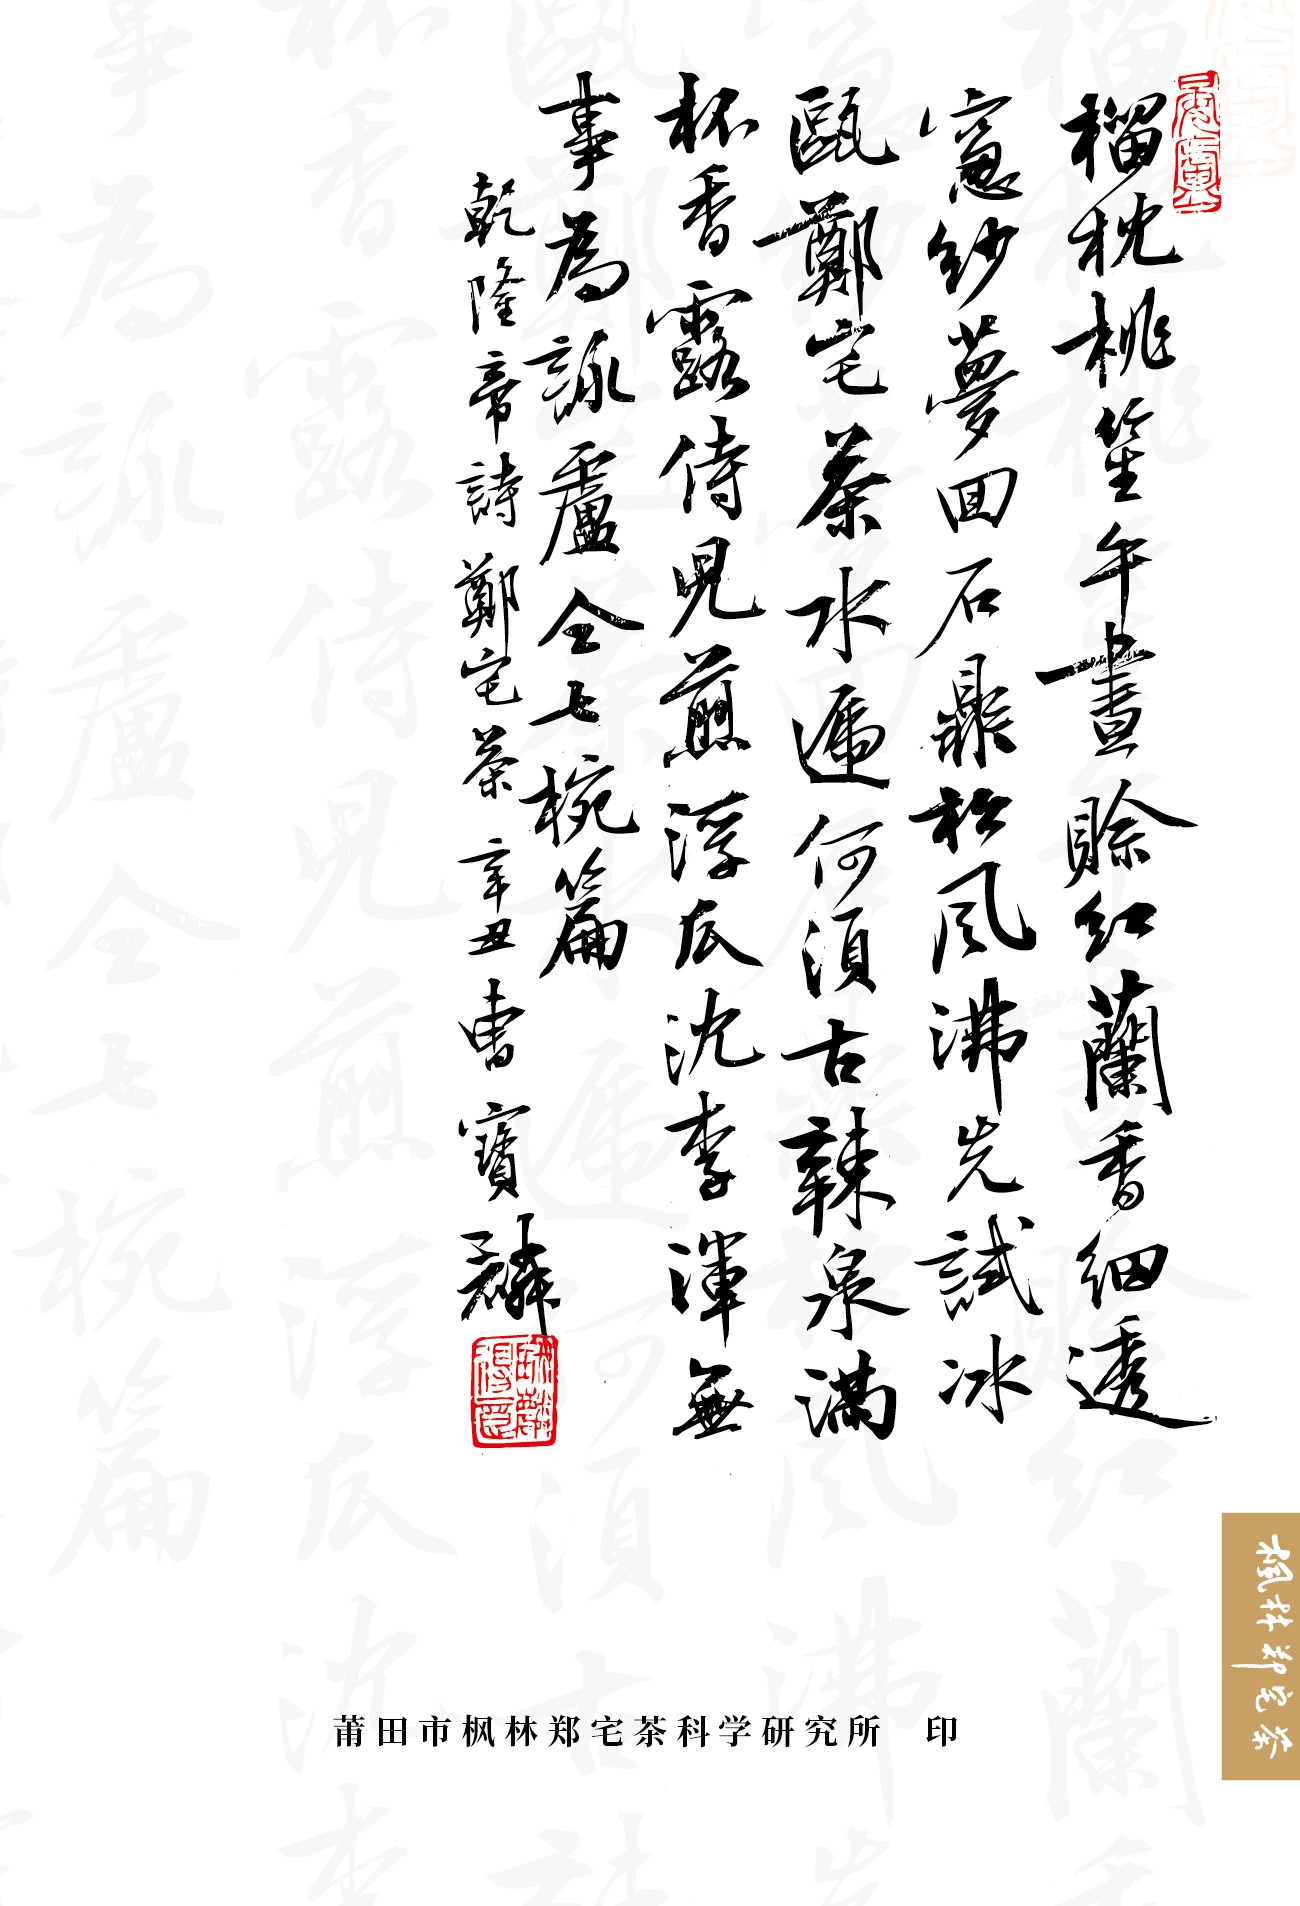 榴枕桃笙午晝賒紅蘭香細透
窻紗夢回石鼎松風沸先試冰
甌鄭宅茶水遞何須古竦泉滿
杯香露侍兒煎浮瓜沈李渾無
事為詠盧仝七椀篇
乾隆帝詩鄭宅茶辛丑曹寶麟
枫林郑宅茶
莆田市枫林郑宅茶科学研究所 印